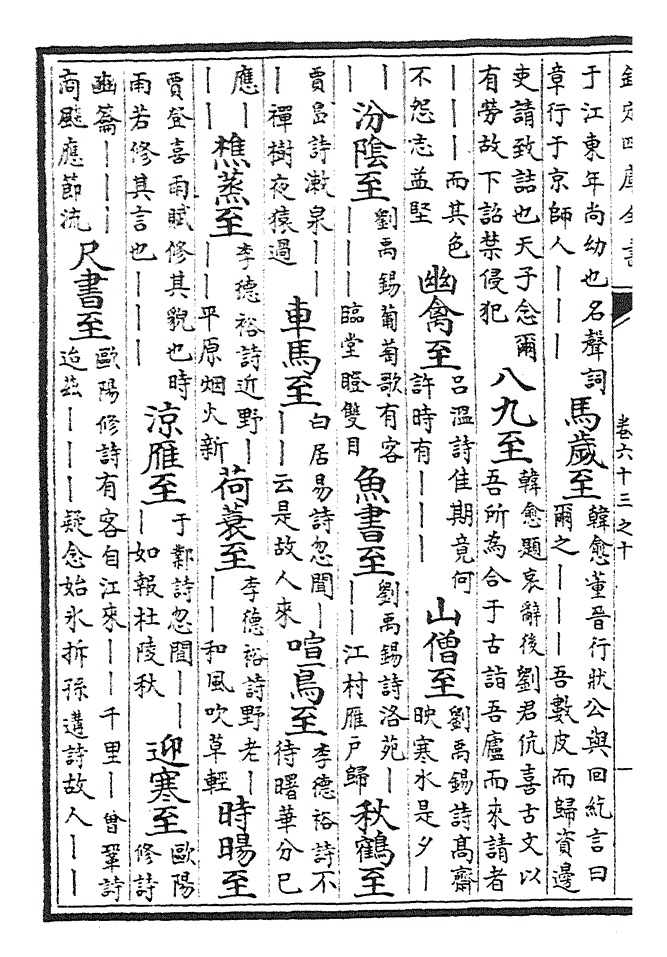 欽定四庫全書
卷六十三之十
一
于江東年尚幼也名聲詞
章行于京師人｜｜｜
馬歲至
韓愈董晉行狀公與回紇言曰
爾之｜｜｜吾數皮而歸資邊
吏請致詰也天子念爾
有勞故下詔禁侵犯
八九至
韓愈題哀辭後劉君伉喜古文以
吾所為合于古詣吾廬而來請者
｜｜｜而其色
不怨志益堅
幽禽至
呂溫詩佳期竟何
許時有｜｜｜
山僧至
劉禹錫詩髙齋
映寒水是夕｜
｜
｜｜
汾陰至
劉禹錫葡萄歌有客
｜｜｜臨堂瞪雙目
魚書至
劉禹錫詩洛苑｜
｜｜江村雁戸歸
秋鶴至
賈島詩漱泉｜｜
｜禪樹夜猿過
車馬至
白居易詩忽聞｜
｜｜云是故人來
喧鳥至
李德裕詩不
待曙華分已
應｜
｜｜
樵蒸至
李德裕詩近野｜
｜｜平原烟火新
荷蓑至
李德裕詩野老｜
｜｜和風吹草輕
時暘至
賈登喜雨賦修其貌也時
雨若修其言也｜｜｜
涼雁至
于鄴詩忽聞｜｜
｜如報杜陵秋
迎寒至
歐陽
修詩
豳籥｜｜｜
商飈應節流
尺書至
歐陽修詩有客自江來｜｜千里｜曾鞏詩
迨兹｜｜｜疑念始氷拆孫遘詩故人｜｜